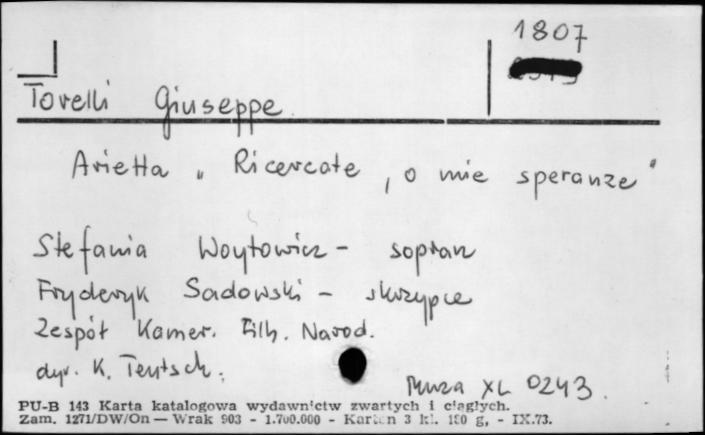 1807
Torelli Giuseppe
Arietta „Ricercate, o mie speranze"
Stefania Woytowicz - sopran
Fryderyk Sadowski - skrzypce
Zespół Kamer. Filh. Narod.
dyr. K. Teutsch.
Muza XL 0243.
PU-B 143 Karta katalogowa wydawnictw zwartych i ciągłych.
Zam. 1271/DW/On — Wrak 903 - 1.700.000 - Karton 3 kl. 180 g, - IX.73.